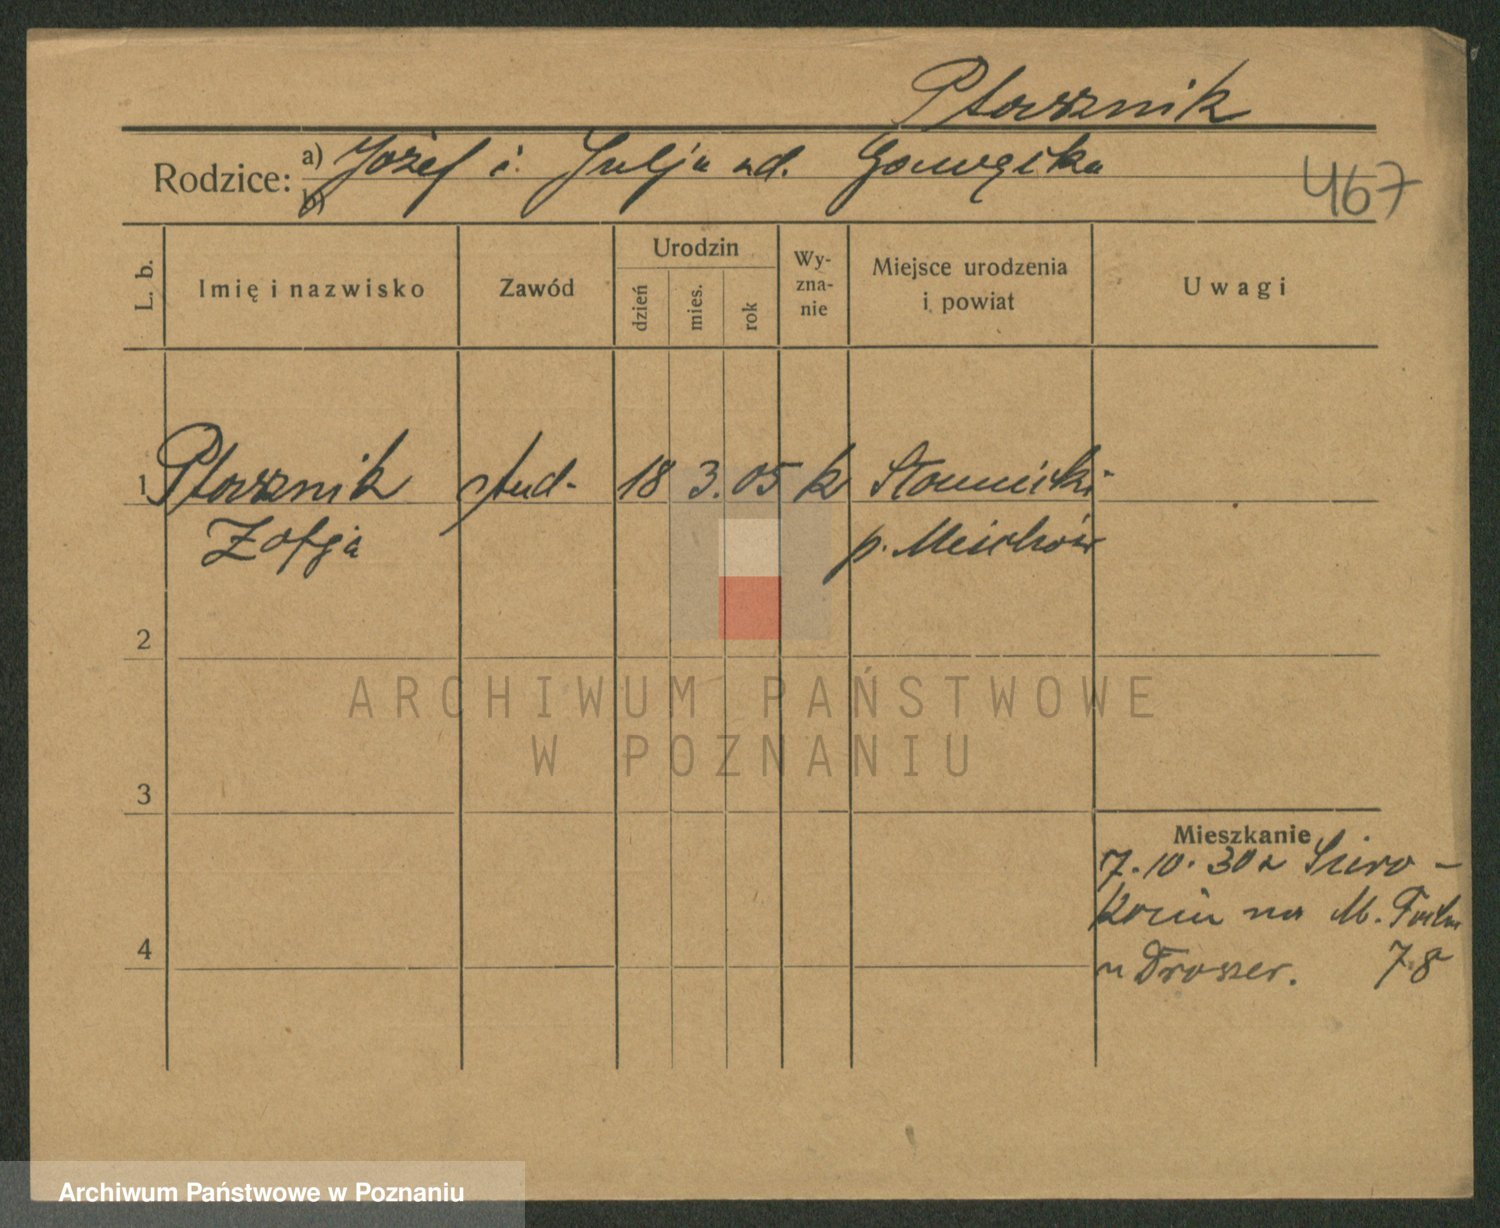 Ptasznik
Rodzice: a) Józef i Julja zd.
b)
467
L. b.
Imię i nazwisko
Zawód
Urodzin
dzień
mies.
rok
Wy-
zna-
nie
Miejsce urodzenia
i powiat
Uwagi
1 Ptasznik stud. 18 3. 05 k Słomniki
Zofja p. Miechów
2
ARCHIWUM PAŃSTWOWE
W POZNANIU
3
Mieszkanie
7.10.30 z
na M. Focha
4
u Drosser. 78
Archiwum Państwowe w Poznaniu